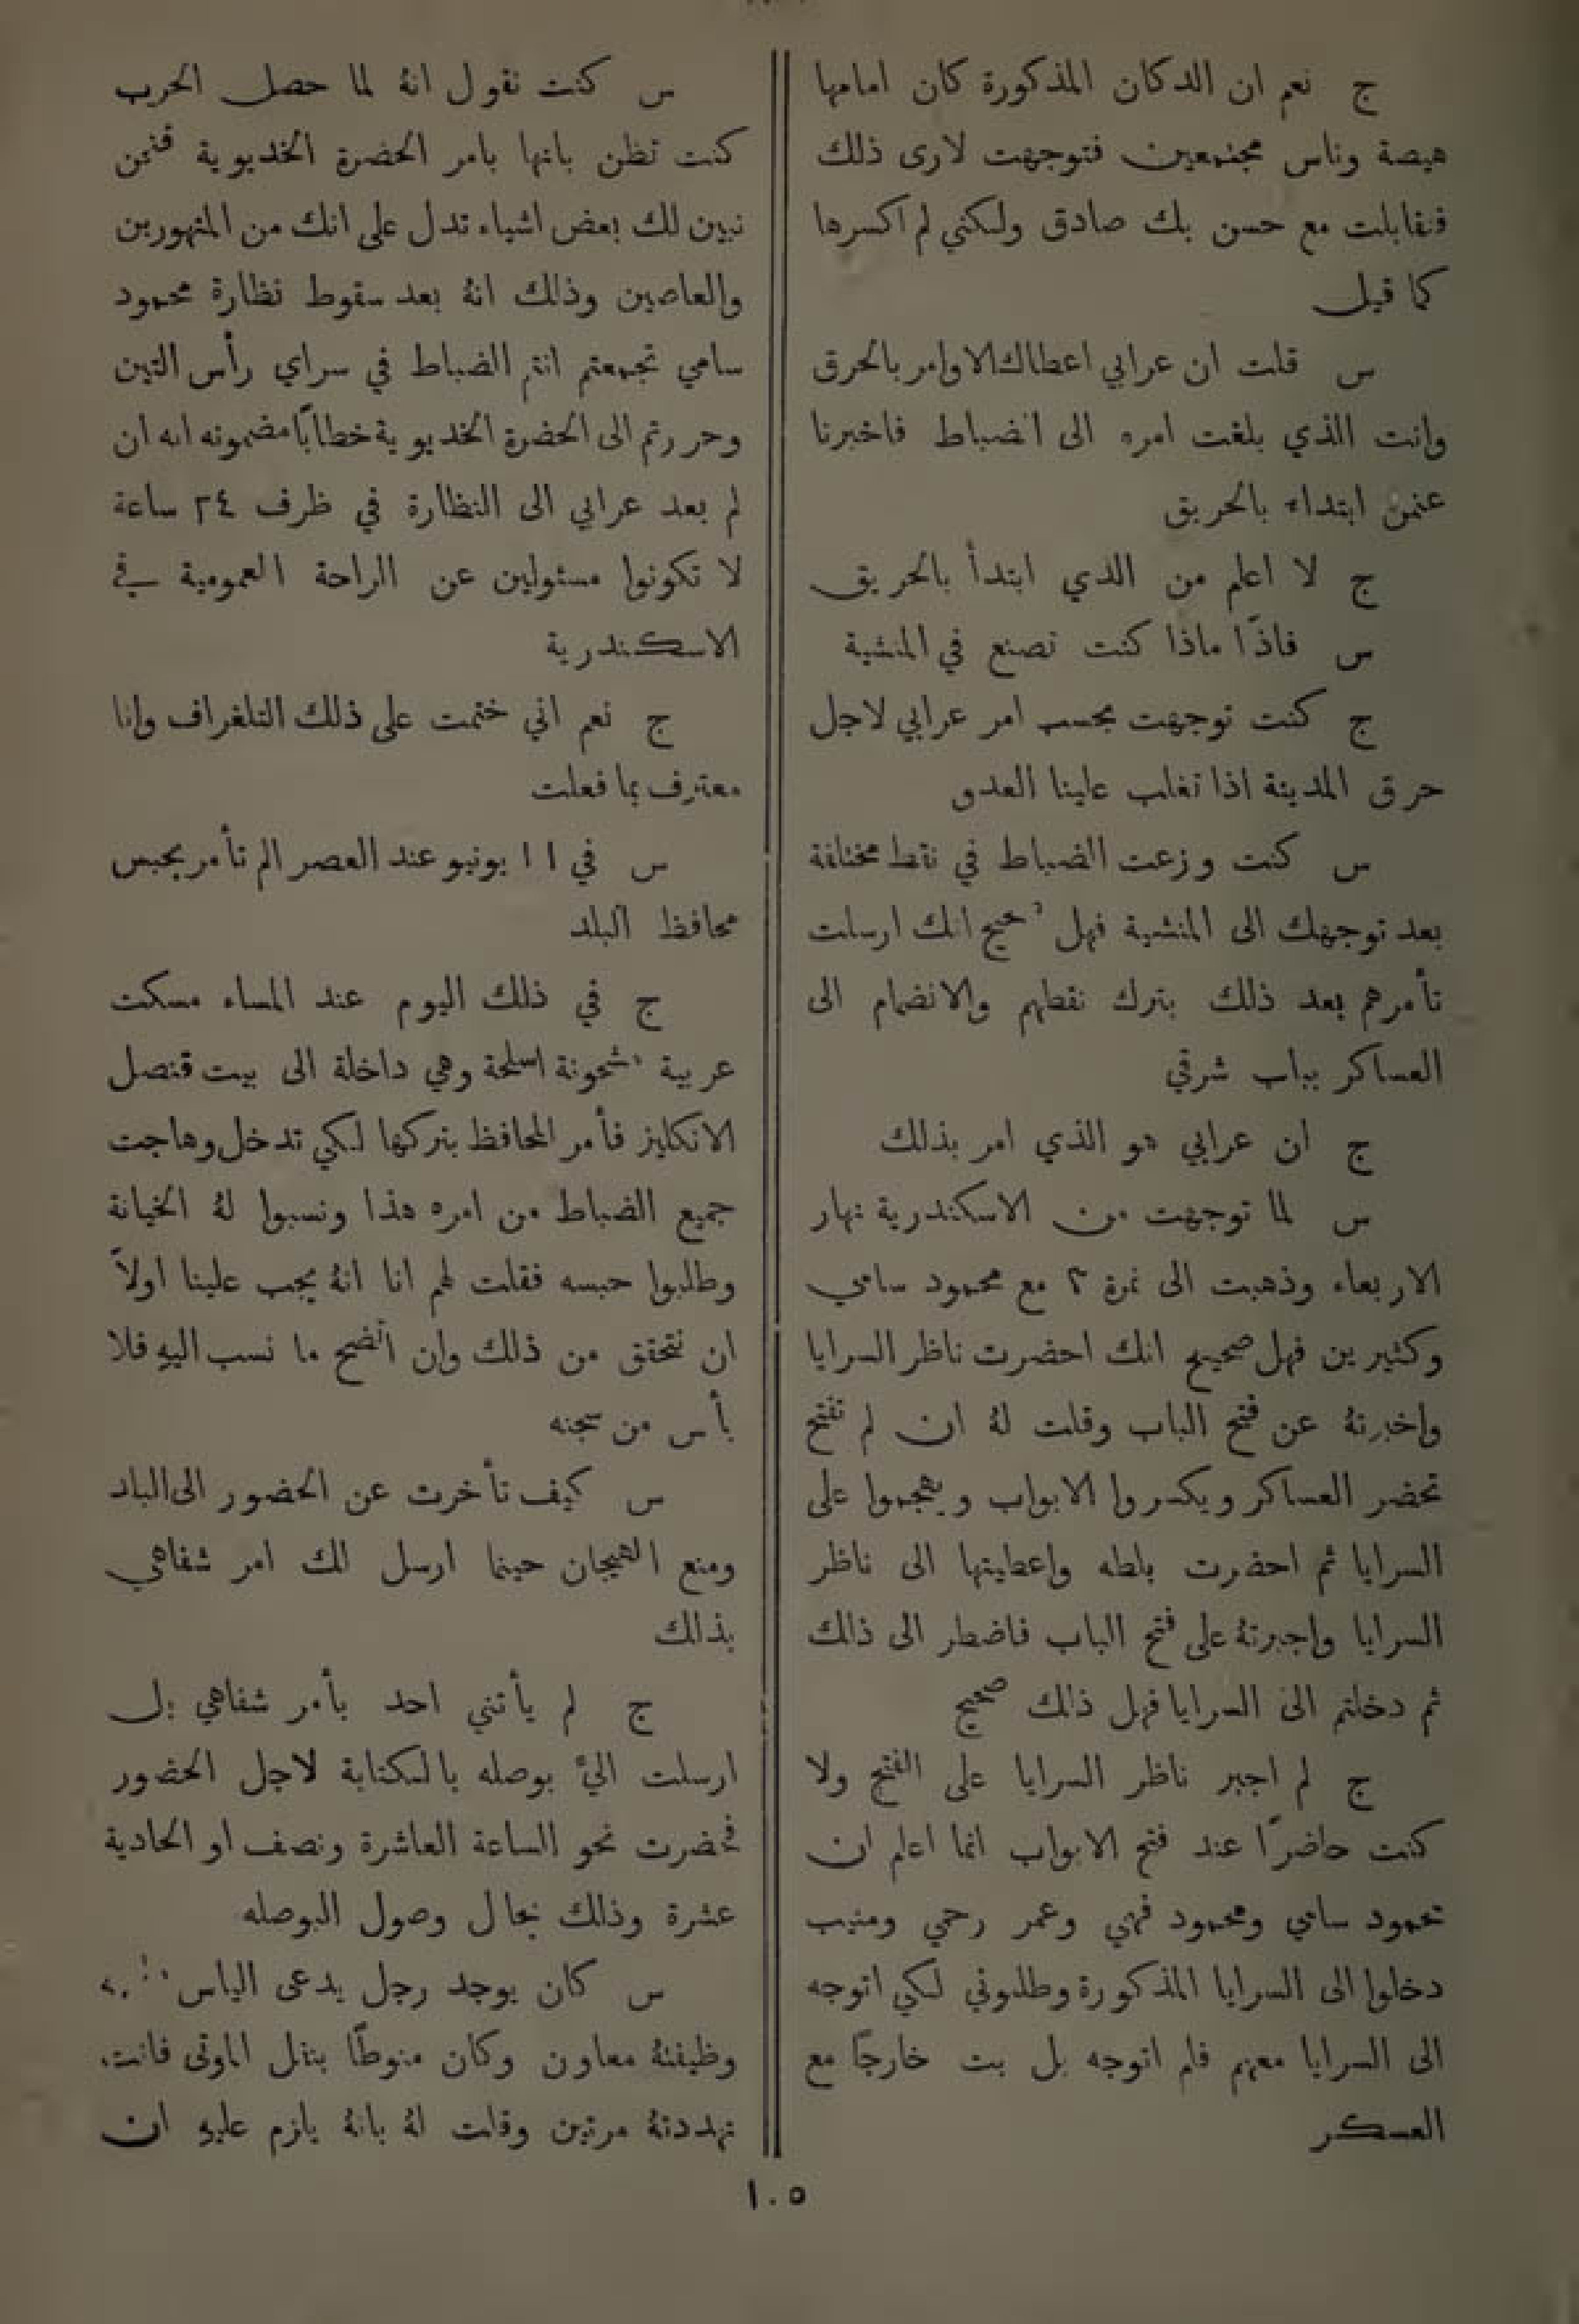 ج نعم ان الدكان المذكورة كان امامها
هيصة وناس مجتمعين فتوجهت لارى ذلك
فتقابلت مع حسن بك صادق ولكني لم اكسرها
كما قيل
س قلت ان عرابي اعطاك الاوامر بالحرق
وانت الذي بلغت امره الى الضباط فاخبرنا
عمن ابتداء بالحريق
ج لا اعلم من الذي ابتدأ بالحريق
س فاذًا ماذا كنت تصنع في المنشية
ج كنت توجهت بحسب امر عرابي لاجل
حرق المدينة اذا تغلب علينا العدو
س كنت وزعت الضباط في نقط مختلفة
بعد توجهك الى المنشية فهل صحيح انك ارسلت
تأمرهم بعد ذلك بترك نقطهم والانضمام الى
العساكر بباب شرقي
ج ان عرابي هو الذي امر بذلك
س لما توجهت من الاسكندرية نهار
الاربعاء وذهبت الى نمرة ٣ مع محمود سامي
وكثيرين فهل صحيح انك احضرت ناظر السرايا
واخبرتهُ عن فتح الباب وقلت لهُ ان لم تفتح
تحضر العساكر ويكسروا الابواب ويهجموا على
السرايا ثم احضرت بلطه واعطيتها الى ناظر
السرايا واجبرتهُ على فتح الباب فاضطر الى ذلك
ثم دخلتم الى السرايا فهل ذلك صحيح
ج لم اجبر ناظر السرايا على الفتح ولا
كنت حاضرًا عند فتح الابواب انما اعلم ان
محمود سامي ومحمود فهمي وعمر رحمي ومنيب
دخلوا الى السرايا المذكورة وطلبوني لكي اتوجه
الى السرايا معهم فلم اتوجه بل بت خارجًا مع
العسكر
س كنت تقول انهُ لما حصل الحرب
كنت تظن بانها بامر الحضرة الخديوية فنحن
نبين لك بعض اشياء تدل على انك من المتهورين
والعاصين وذلك انهُ بعد سقوط نظارة محمود
سامي تجمعتم انتم الضباط في سراي رأس التين
وحررتم الى الحضرة الخديوية خطابًا مضمونه انه ان
لم يعد عرابي الى النظارة في ظرف ٢٤ ساعة
لا تكونوا مسئولين عن الراحة العمومية في
الاسكندرية
ج نعم اني ختمت على ذلك التلغراف وانا
معترف بما فعلت
س في ١١ يونيو عند العصر الم تأمر بحبس
محافظ البلد
ج في ذلك اليوم عند المساء مسكت
عربية مشحونة اسلحة وهي داخلة الى بيت قنصل
الانكليز فأمر المحافظ بتركها لكي تدخل وهاجت
جميع الضباط من امره هذا ونسبوا لهُ الخيانة
وطلبوا حبسه فقلت لهم انا انهُ يجب علينا اولاً
ان نتحقق من ذلك وان اتضح ما نسب اليهِ فلا
بأس من سجنه
س كيف تأخرت عن الحضور الى البلد
ومنع الهيجان حينما ارسل لك امر شفاهي
بذلك
ج لم يأتني احد بأمر شفاهي بل
ارسلت اليَّ بوصله بالكتابة لاجل الحضور
فحضرت نحو الساعة العاشرة ونصف او الحادية
عشرة وذلك بحال وصول البوصله
س كان يوجد رجل يدعى الياس
وظيفتهُ معاون وكان منوطًا بنقل الموتى فانت
تهددتهُ مرتين وقلت لهُ بانهُ يلزم عليهِ ان
١٠٥